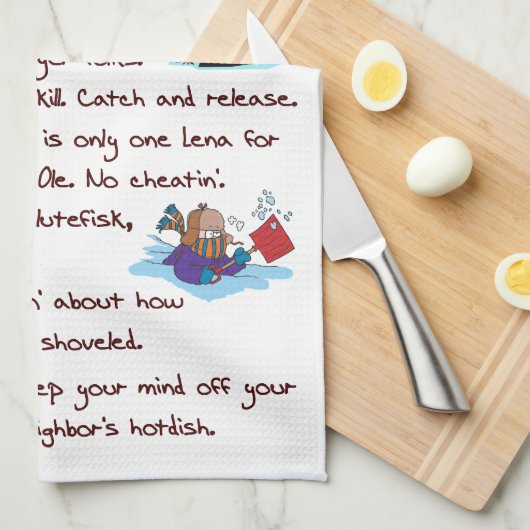 kill. Catch and release.
is only one Lena for
Ole. No cheatin'.
lutefisk,
' about how
shoveled.
ep your mind off your
ighbor's hotdish.